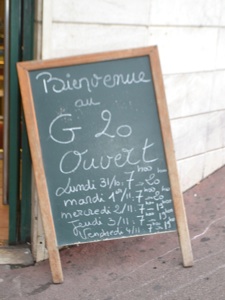 Bienvenue
au
G 20
Ouvert
Lundi 31/10: 7h00 20h00
mardi 1er/11: 7
mercredi 2/11: 7
Jeudi 3/11: 7
Vendredi 4/11: 7